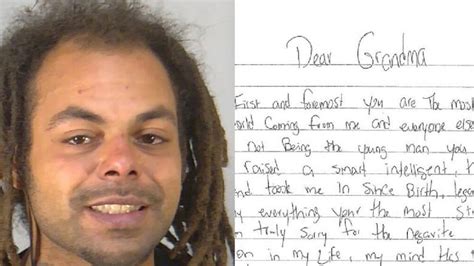 Dear Grandma
First and foremost you are The most
orld Coming from me and everyone else
not Being the young man you
raised a smart intelligent,
and took me In Since Birth,
everything your the most
truly Sorry for the Negavite
on in my Life, my mind